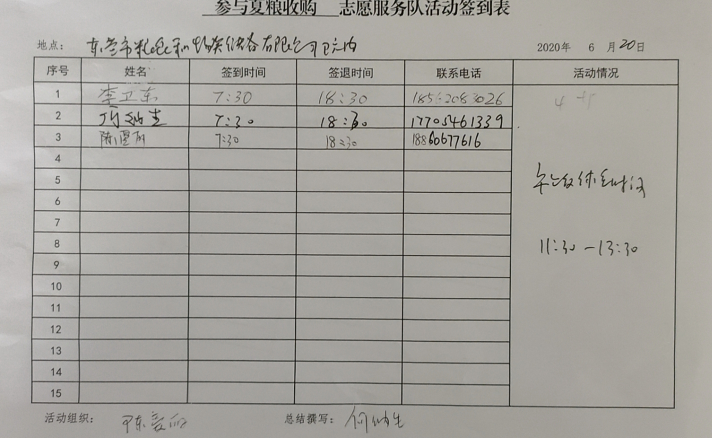 参与夏粮收购 志愿服务队活动签到表
地点： 东营市 物资储备有限公司 内 2020年 6 月 20 日
序号 姓名 签到时间 签退时间 联系电话 活动情况
1 李卫东 7:30 18:30 18562083026
2 7:30 18:30 17705461339
3 陈 7:30 18:30 18860677616
4
5 午饭休息时间
6
7
8 11:30-13:30
9
10
11
12
13
14
15
活动组织： 陈爱 总结撰写：